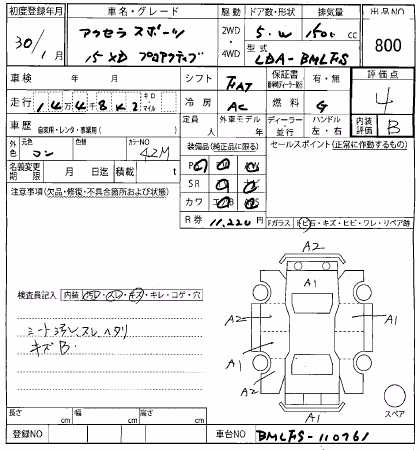 初度登録年月 車名・グレード 駆動 ドア数・形状 排気量 出品NO
30/1 アクセラ スポーツ 2WD 5.W 1500 cc 800
15 XD プロアクティブ 4WD 型式 LDA-BMLFS
車検 年 月 シフト FAT 保証書 有・無 評価点
走行 144842 キロ マイル 冷房 AC 燃料 G 4
車歴 自家用・レンタ・事業用( ) 定員 人 外車モデル 年 ディーラー 並行 ハンドル 左・右 内装評価 B
外色 元色 コン 色替 カラーNO 42M 装備品(純正品に限る) セールスポイント(正常に作動するもの)
名義変更期限 月 日迄 積載 t
注意事項(欠品・修復・不具合箇所および状態) SR
カワ
R券 11,220円
Fガラス トビ石・キズ・ヒビ・ワレ・リペア跡
A2
A1
検査員記入 内装 汚レ・スレ・キズ・キレ・コゲ・穴
A2 A1
シート汚レ スレ ヘタリ
キズ B.
A1
A2
A1
スペア
長さ cm 幅 cm 高さ cm
登録NO 車台NO BMLFS-110761